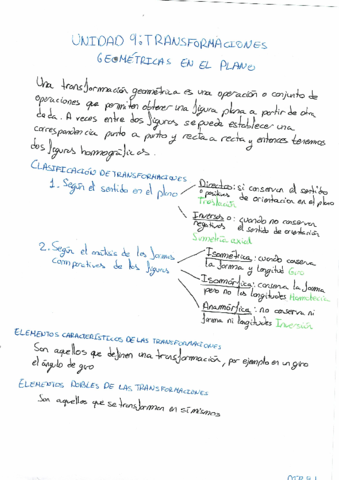 UNIDAD 9: TRANSFORMACIONES
GEOMÉTRICAS EN EL PLANO
Una transformación geométrica es una operación o conjunto de
operaciones que permiten obtener una figura plana a partir de otra
dada. A veces entre dos figuras se puede establecer una
correspondencia punto a punto y recta a recta y entonces tenemos
dos figuras homográficas.
CLASIFICACIÓN DE TRANSFORMACIONES
1. Según el sentido en el plano
Directos: si conservan el sentido
o positivas de orientación en el plano
Traslación
Inversos o: cuando no conservan
negativos el sentido de orientación
Simetría axial
2. Según el análisis de las formas
comparativas de las figuras
Isométrica: cuando conserva
la forma y longitud Giro
Isomórfica: conserva la forma
pero no las longitudes Homotecia
Anamórfica: no conserva ni
forma ni longitudes Inversión
ELEMENTOS CARACTERÍSTICOS DE LAS TRANSFORMACIONES
Son aquellos que definen una transformación, por ejemplo en un giro
el ángulo de giro
ELEMENTOS DOBLES DE LAS TRANSFORMACIONES
Son aquellos que se transforman en sí mismos